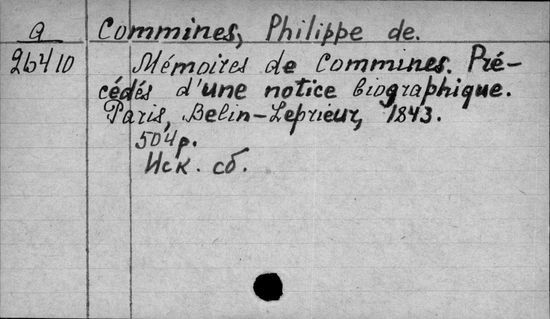 a Commines, Philippe de.
25410 Mémoires de Commines. Pré-
cédés d'une notice biographique.
Paris, Belin-Leprieur, 1843.
504 p.
Иск. сб.